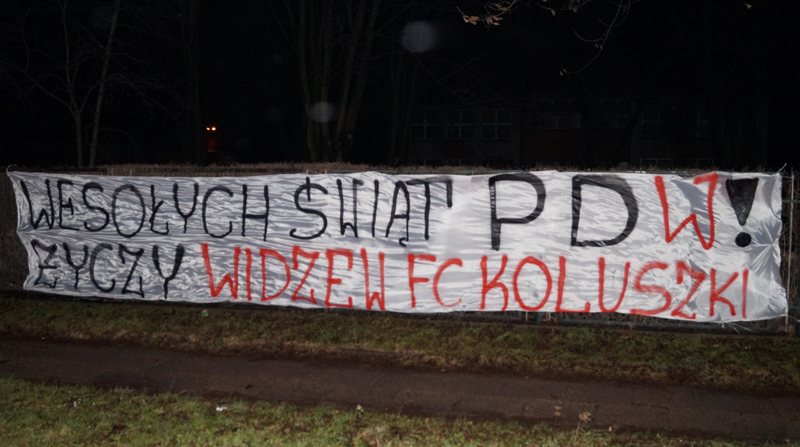 WESOŁYCH ŚWIĄT PDW!
ŻYCZY WIDZEW FC KOLUSZKI